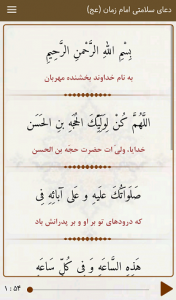 دعای سلامتی امام زمان (عج)
بِسْمِ اللهِ الرَّحْمنِ الرَّحِيمِ
به نام خداوند بخشنده مهربان
اللَّهُمَّ كُنْ لِوَلِيِّكَ الْحُجَّهِ بنِ الْحَسَن
خدایا، ولی ات حضرت حجه بن الحسن
صَلَواتُكَ عَلَيهِ وَ عَلى آبائِهِ فِى
که درودهای تو بر او و بر پدرانش باد
هَذِهِ السَّاعَهِ وَ فِى كُلِّ سَاعَهٍ
۱:۵۴